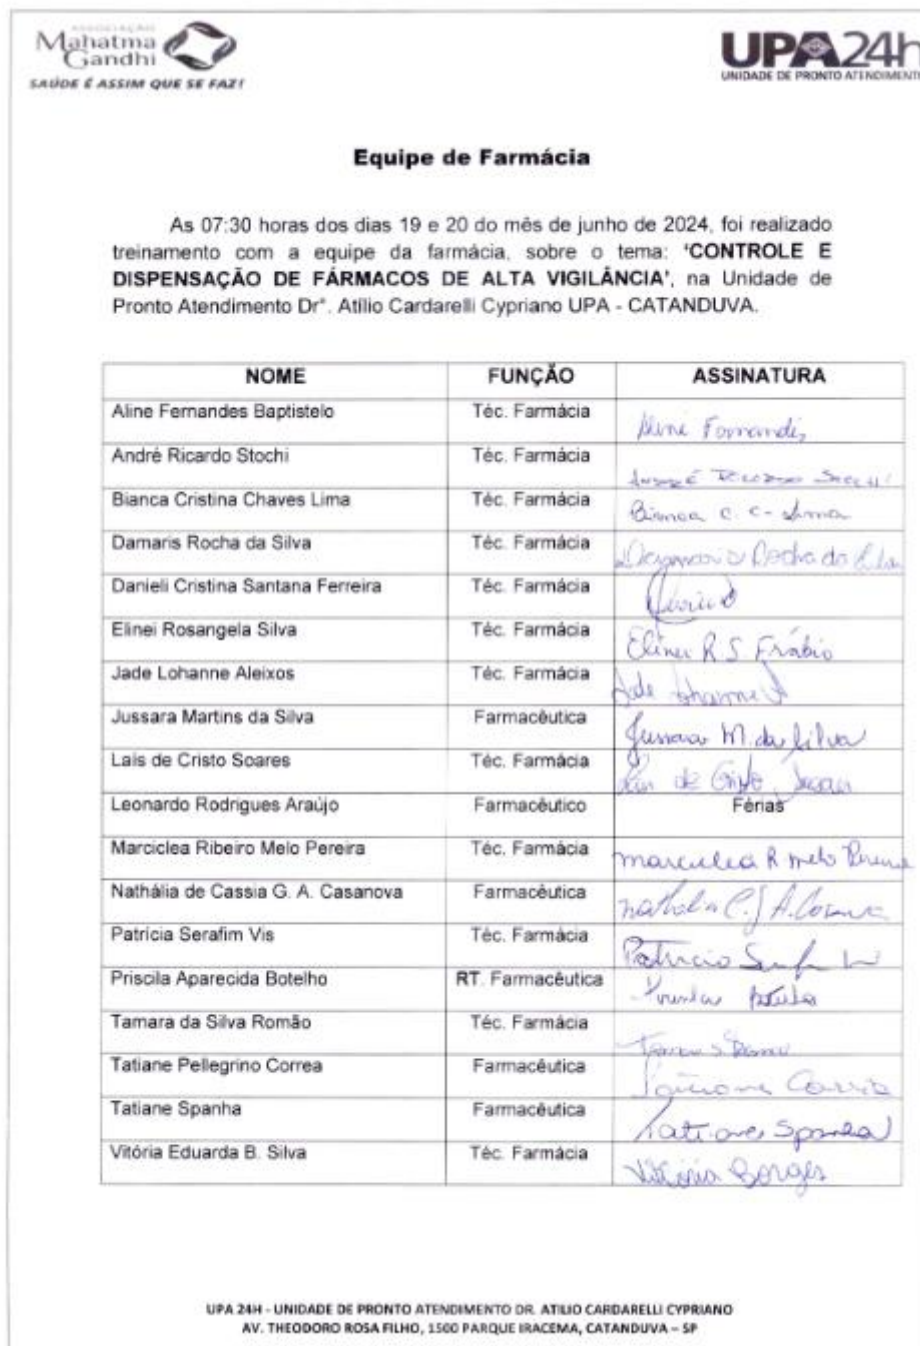 ASSOCIAÇÃO
Mahatma
Gandhi
SAÚDE É ASSIM QUE SE FAZ!
UPA24h
UNIDADE DE PRONTO ATENDIMENTO
Equipe de Farmácia
As 07:30 horas dos dias 19 e 20 do mês de junho de 2024, foi realizado
treinamento com a equipe da farmácia, sobre o tema: 'CONTROLE E
DISPENSAÇÃO DE FÁRMACOS DE ALTA VIGILÂNCIA', na Unidade de
Pronto Atendimento Dr°. Atilio Cardarelli Cypriano UPA - CATANDUVA.
NOME FUNÇÃO ASSINATURA
Aline Fernandes Baptistelo Téc. Farmácia Aline Fernandes
André Ricardo Stochi Téc. Farmácia André Ricardo Stochi
Bianca Cristina Chaves Lima Téc. Farmácia Bianca C. C. Lima
Damaris Rocha da Silva Téc. Farmácia Damaris Rocha da Silva
Danieli Cristina Santana Ferreira Téc. Farmácia
Elinei Rosangela Silva Téc. Farmácia Elinei R. S. Frábio
Jade Lohanne Aleixos Téc. Farmácia Jade Lohanne
Jussara Martins da Silva Farmacêutica Jussara M. da Silva
Laís de Cristo Soares Téc. Farmácia Lais de Cristo Soares
Leonardo Rodrigues Araújo Farmacêutico Férias
Marciclea Ribeiro Melo Pereira Téc. Farmácia Marciclea R Melo Pereira
Nathália de Cassia G. A. Casanova Farmacêutica Nathalia C. G A. Casanova
Patrícia Serafim Vis Téc. Farmácia Patricia
Priscila Aparecida Botelho RT. Farmacêutica
Tamara da Silva Romão Téc. Farmácia Tamara S. Romão
Tatiane Pellegrino Correa Farmacêutica Tatiane Correa
Tatiane Spanha Farmacêutica Tatiane Spanha
Vitória Eduarda B. Silva Téc. Farmácia Vitória Borges
UPA 24H - UNIDADE DE PRONTO ATENDIMENTO DR. ATILIO CARDARELLI CYPRIANO
AV. THEODORO ROSA FILHO, 1500 PARQUE IRACEMA, CATANDUVA – SP